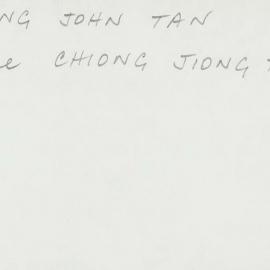 NG JOHN TAN
e CHIONG JIONG